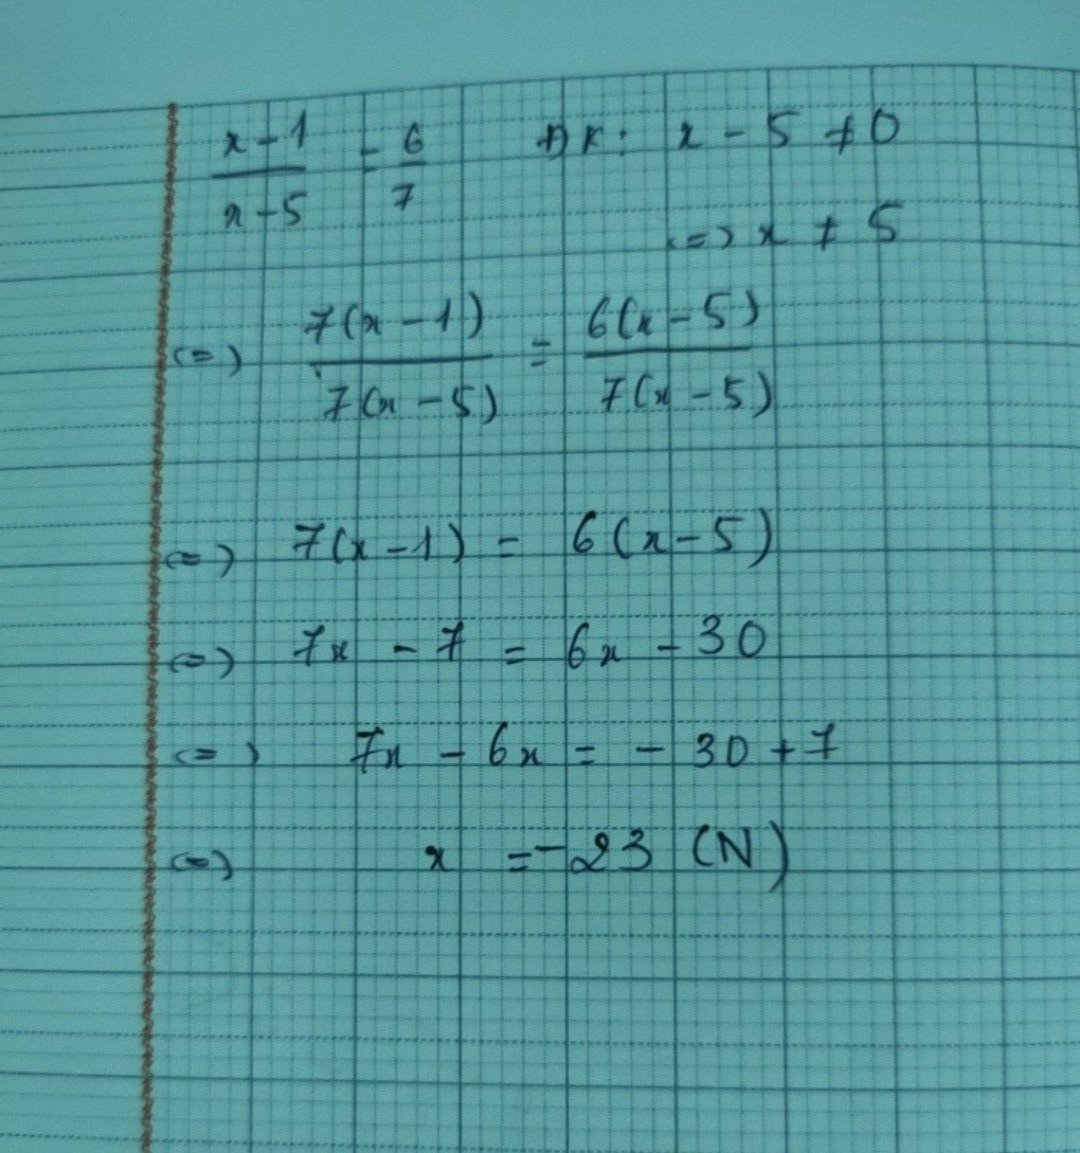 x-1/x-5 = 6/7 ĐK: x - 5 ≠ 0
<=> x ≠ 5
<=> 7(x-1)/7(x-5) = 6(x-5)/7(x-5)
<=> 7(x-1) = 6(x-5)
<=> 7x - 7 = 6x - 30
<=> 7x - 6x = - 30 + 7
<=> x = -23 (N)